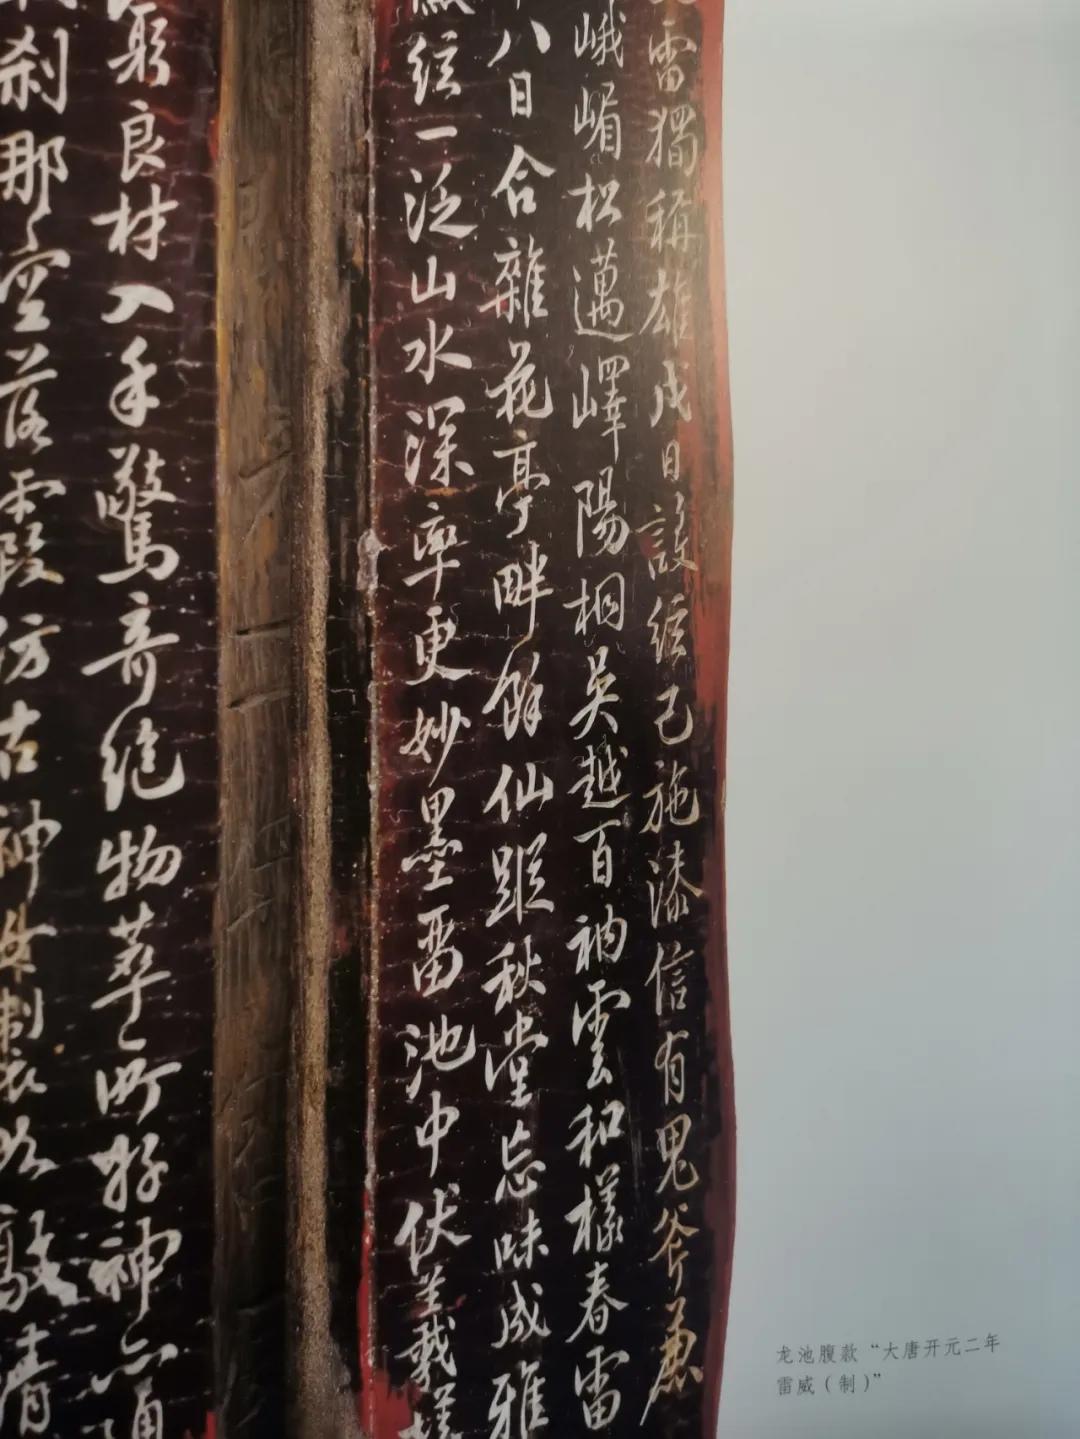 雷獨稱雄戊日設絃己施漆信有鬼斧兼
峨嵋松邁嶧陽桐吳越百衲雲和樣春雷
八日合雜花亭畔餘仙蹤秋堂忘味成雅
絃一泛山水深率更妙墨留池中伏
良材入手驚奇絕物萃所好神亦通
剎那空落霞仿古神女製以清
龙池腹款“大唐开元二年
雷威（制）”